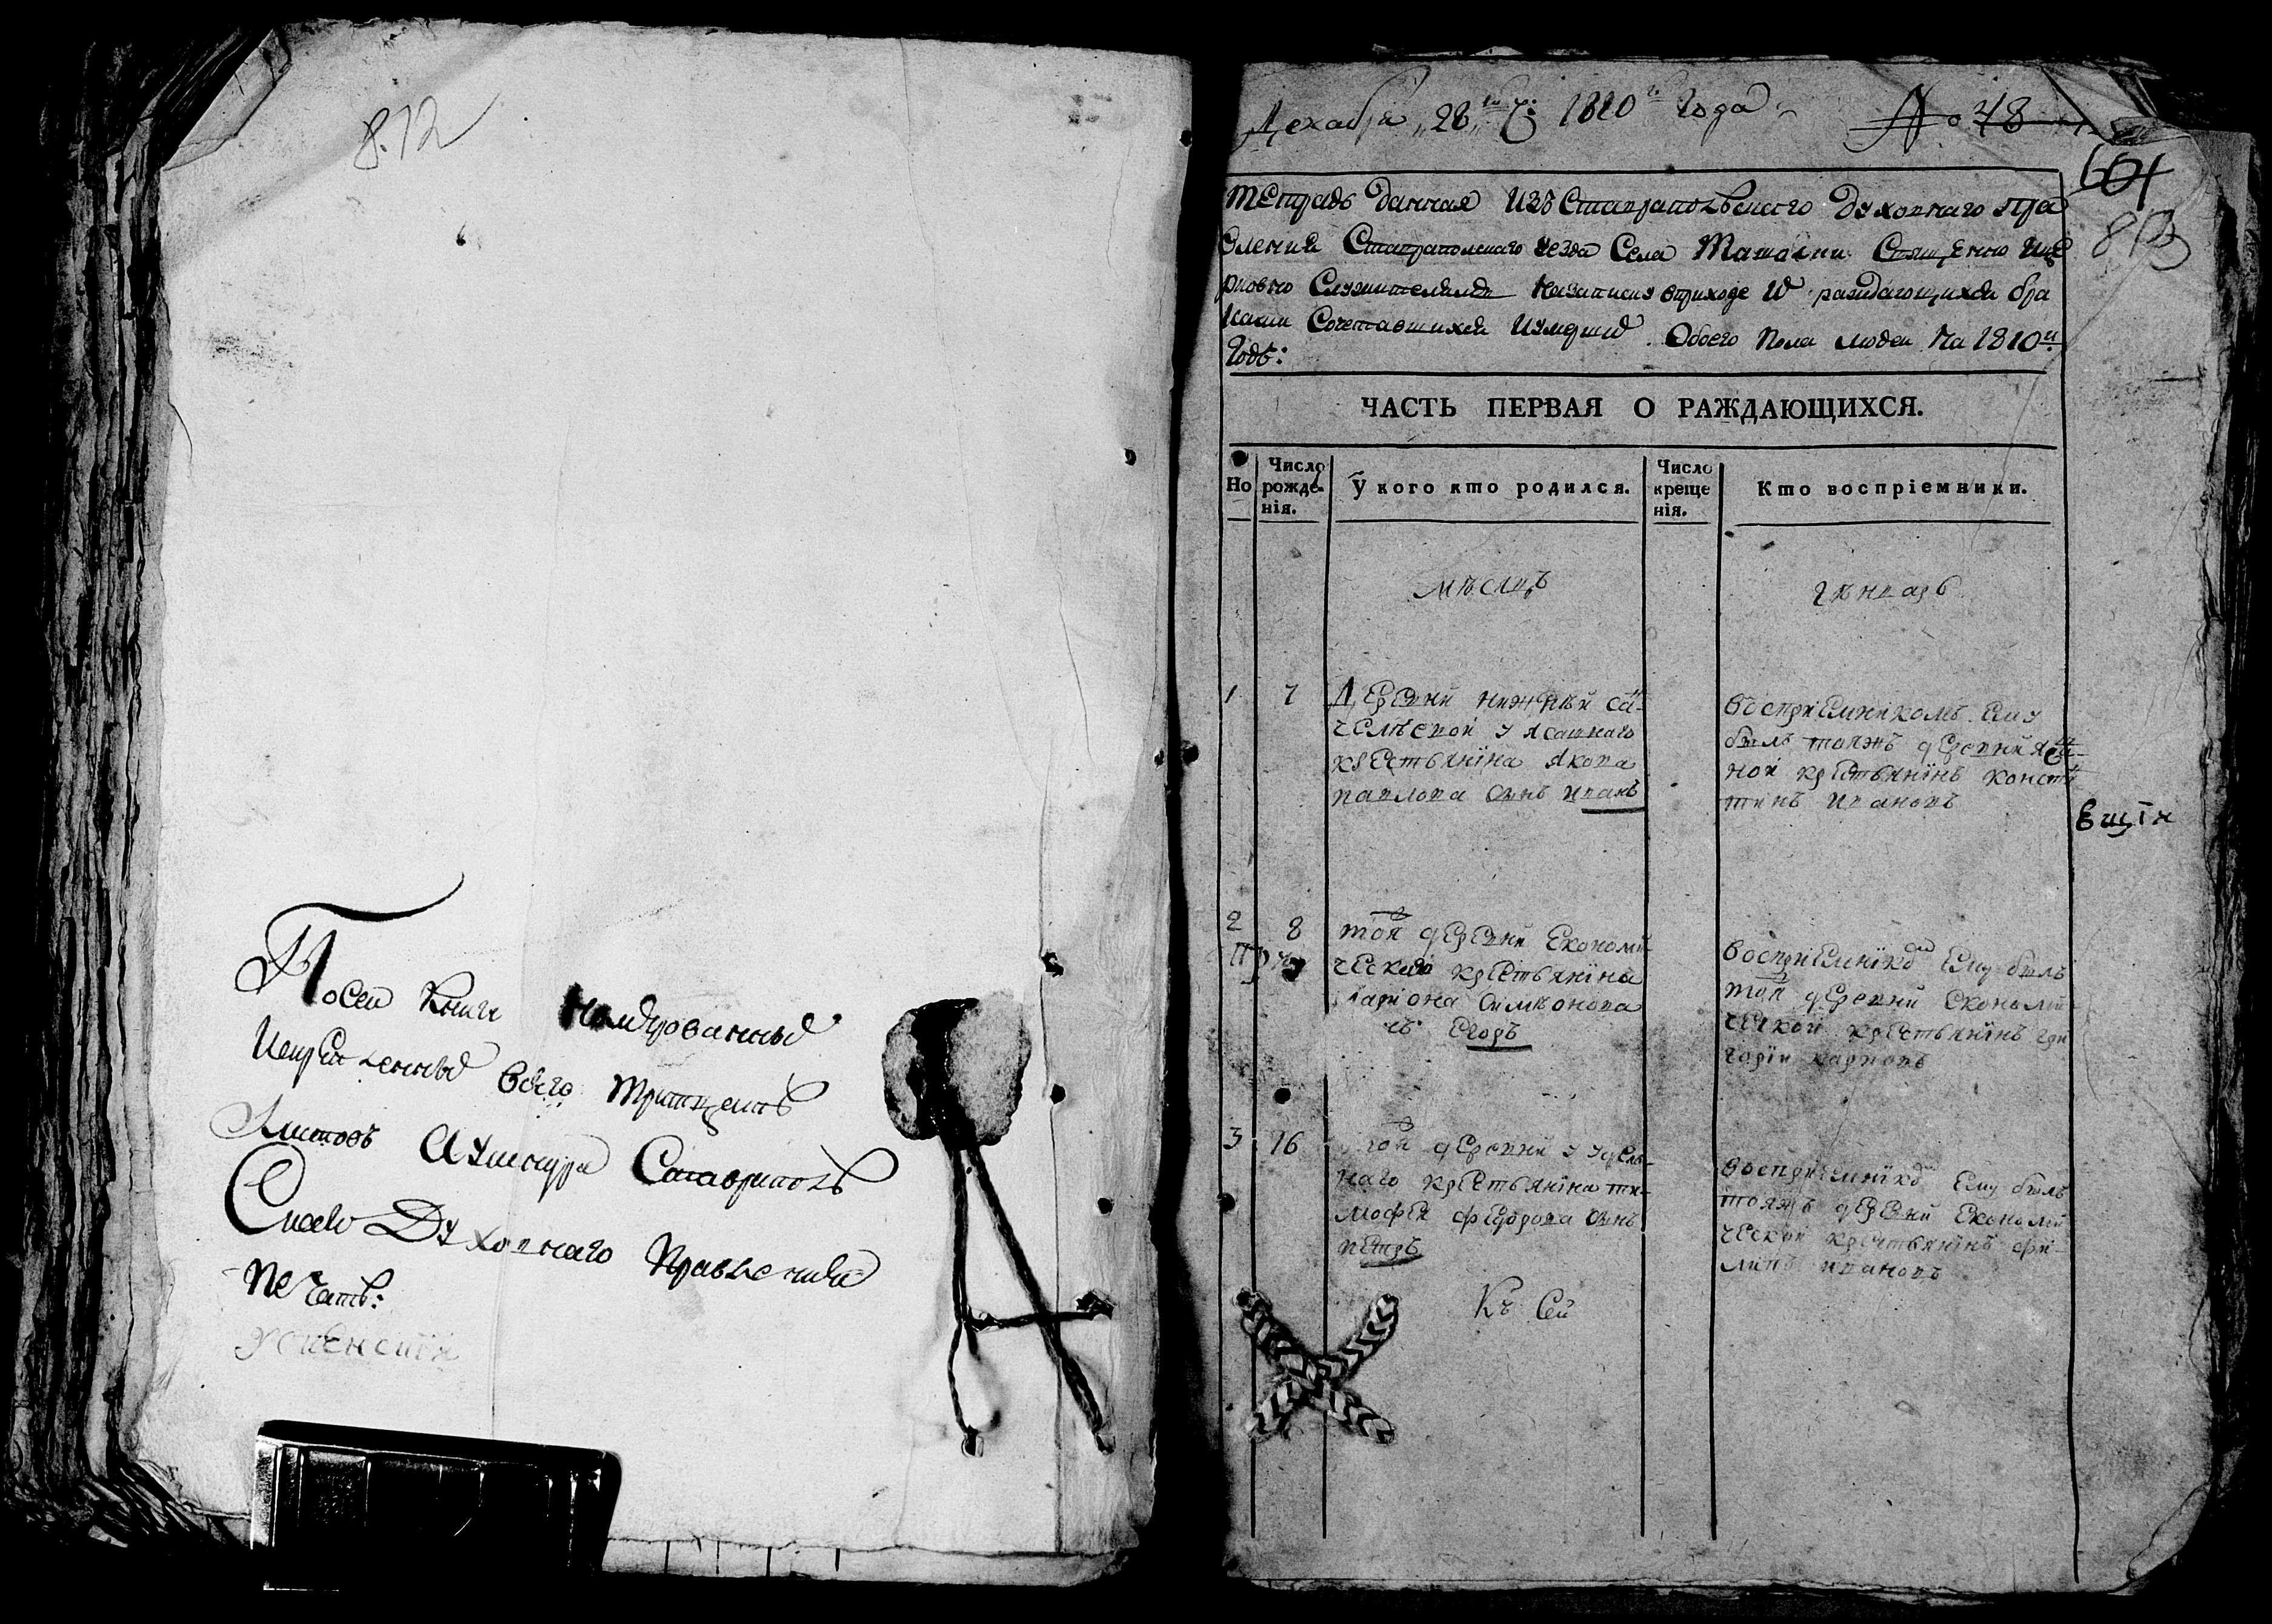 812
По сей книги номерованныхъ
всего тритцеть
Листовъ Ау шнура Ставрополь
Скаго Духовнаго Правления
Печать:
Успенский
Декабря „28„ го ч: 1810 го Года
№ 48
601
813
Тетрадь данная изъ Ставропольскаго духовнаго пра
вления Ставропольскаго уезда Села Священно и це
рковно Служителямъ на записку вприходе раждающихся бра
ками Сочетавшихся Обоего пола людей на 1810й
годъ:
ЧАСТЬ ПЕРВАЯ О РАЖДАЮЩИХСЯ.
Но
Число рожде- нія.
У кого кто родился.
Число креще нія.
Кто воспріемники.
мѣсяцъ
генварь
1 7 Деревни нижнѣй са-
челѣевой у ясашнаго
крестьянина Якова
павлова сынъ иванъ
воспрiемникомъ ему
былъ тояжъ деревни яса-
ной крестьянинъ конста
тинъ ивановъ
2 8 той деревни економи-
ческаго крестьянина
лариона симионова
съ Егоръ
воспрiемником ему былъ
той деревни економи
ческой крестьянинъ гри
горiй карповъ
3 16 той деревни у удель-
наго крестьянина ти-
мофея федорова сынъ
петръ
воспрiемником ему былъ
тояжъ деревни економи
ческой крестьянинъ фи-
липъ ивановъ
Къ Сей